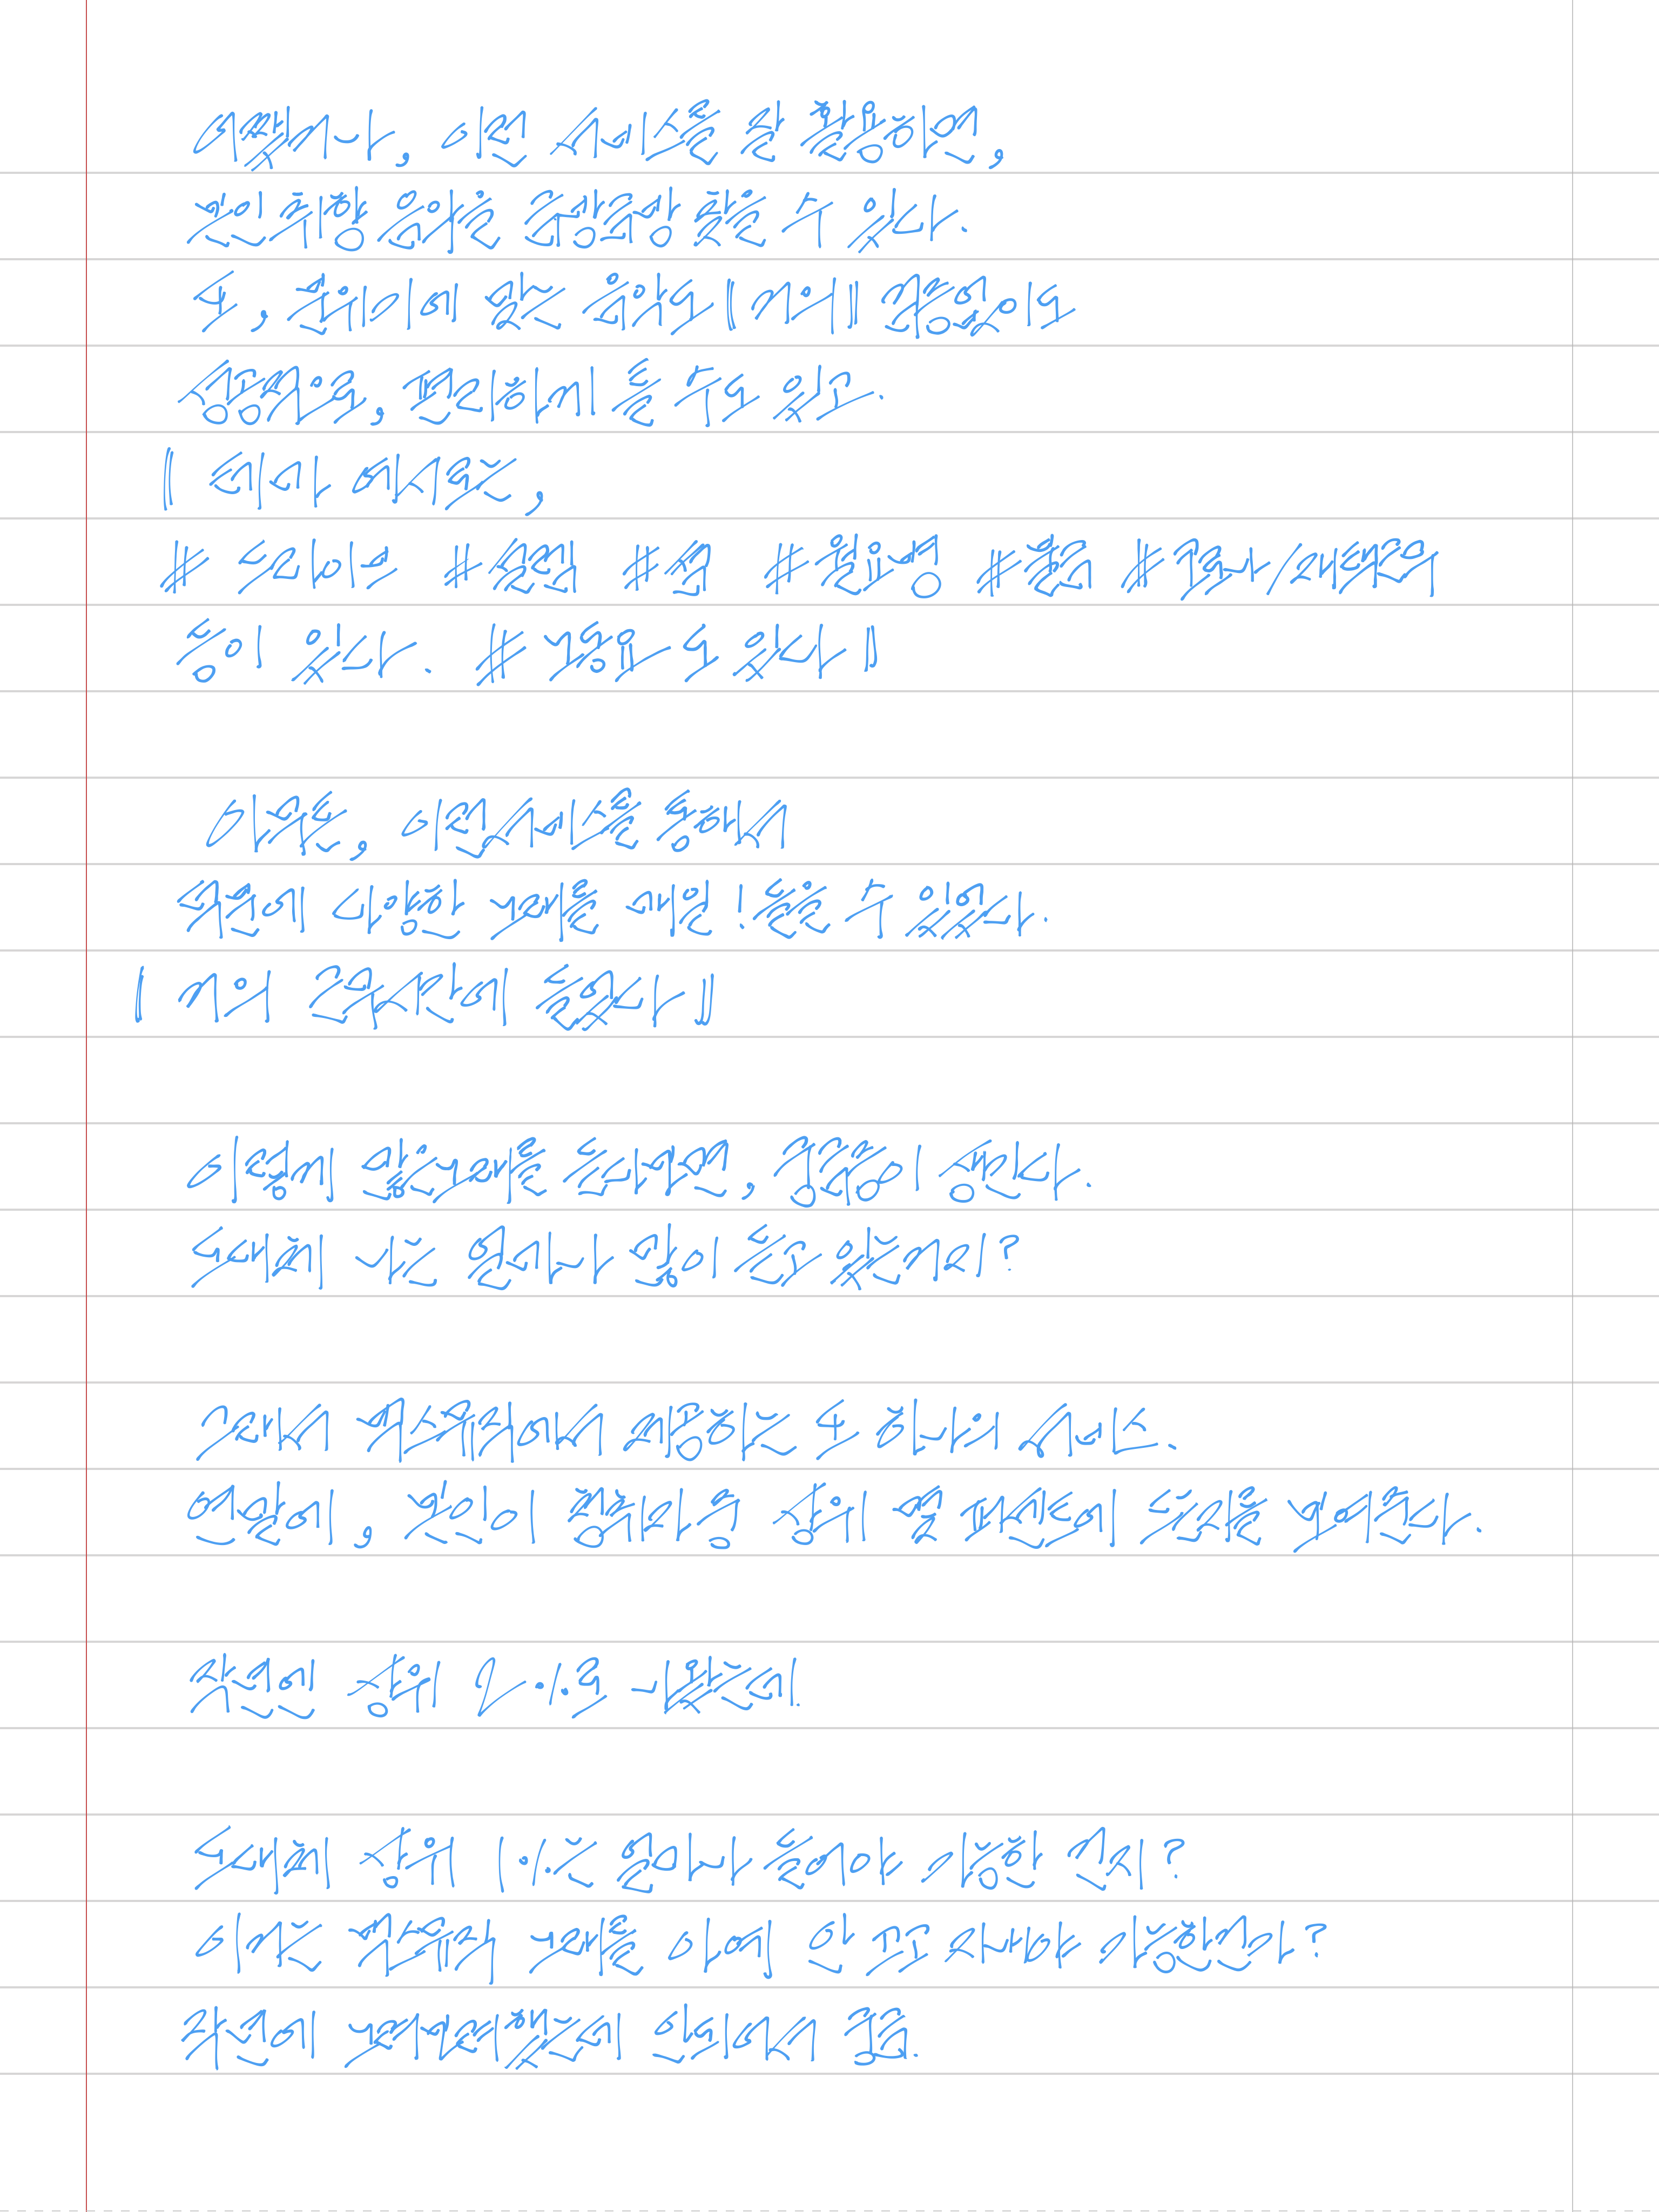 어쨌거나, 이런 서비스를 잘 활용하면,
본인 취향 음악을 수량높게 찾을 수 있다.
또, 분위기에 맞는 음악도 || 거의 || 광고없이도
성공적으로, 편리하게 들을 수도 있고.
|| 테마 예시로는,
# 드라이브 #산책 #숙면 #월요병 #운동 #그루브/재택근무
등이 있다. # 노동요 도 있다 ||
아무튼, 이런서비스를 통해서
덕분에 다양한 노래를 매일! 들을 수 있었다.
|| 거의 근무시간에 들었다 ||
이렇게 많은노래를 듣다보면, 궁금증이 생긴다.
도대체 나는 얼마나 많이 듣고 있는거지?
그래서 벅스뮤직에서 제공하는 또 하나의 서비스.
연말에, 본인이 청취자 중 상위 몇 퍼센트에 드는가를 보여준다.
작년엔 상위 2%로 나왔는데.
도대체 상위 1%는 얼마나 들어야 가능한 건지?
이거는 벅스뮤직 노래를 아예 안 끄고 자야 가능한건가?
작년에 노력해봤는데 안되어서 궁금.